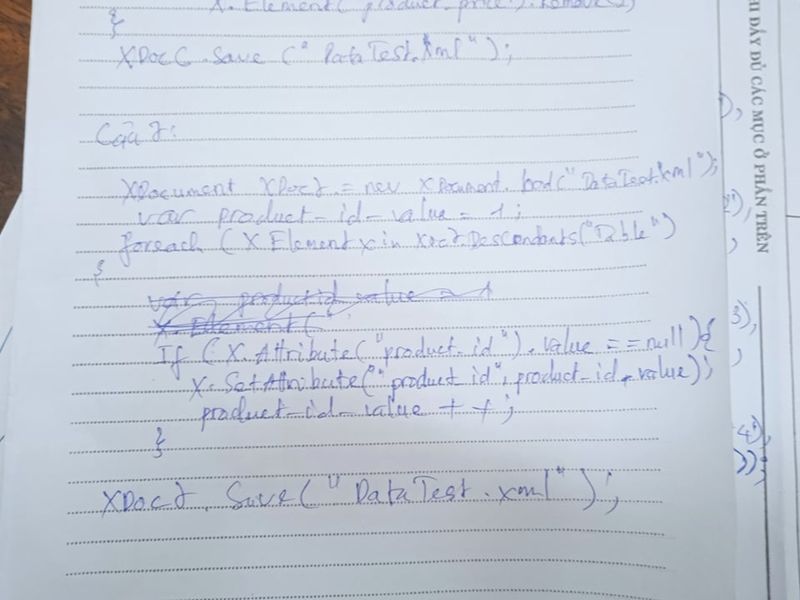 X.Element( product_price ).Remove()
}
XDocC.Save ("DataTest.xml");
Câu 7:
XDocument XDoc7 = new XDocument.Load("DataTest.xml");
var product-id-value = 1;
foreach (XElement x in XDoc7.Descendants("Table")
{
var product id value = 1
X.Element("
If (X.Attribute("product-id").value == null){
X.SetAttribute("product id", product-id-value);
product-id-value ++;
}
XDoc7.Save("DataTest.xml");
HI ĐẦY ĐỦ CÁC MỤC Ở PHẦN TRÊN